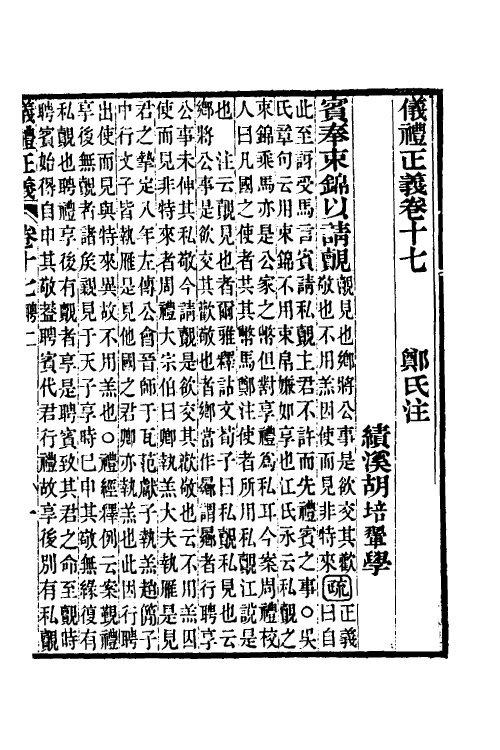 儀禮正義卷十七　鄭氏注
績溪胡培翬學
賓奉束錦以請覿
覿見也鄉將公事是欲交其歡
敬也不用羔因使而見非特來
疏
正義
曰自
此至訝受馬言賓請私覿主君不許而先禮賓之事○吳
氏章句云用束錦不用束帛嫌如享也江氏永云私覿之
束錦乘馬亦是公家之幣但對享禮為私耳今案周禮校
人曰凡國之使者共其幣馬鄭注使者所用私覿江說是
也　注云覿見也者爾雅釋詁文荀子曰私覿私見也云
鄉將公事是欲交其歡敬也者鄉當作曏謂曏者行聘享
公事未伸其私敬今請覿是欲交其歡敬也云不用羔因
使而見非特來者周禮大宗伯曰卿執羔大夫執雁是見
君之摯定八年左傳公會晉師于瓦范獻子執羔趙簡子
中行文子皆執雁是見他國之君卿亦執羔也此因行聘
出使而見與特來異故不用羔也○禮經釋例云案覲禮
享後無覿者諸侯覲見于天子享時巳申其敬無緣復有
私覿也聘禮享後有覿者享是聘賓致其君之命至覿時
聘賓始得自申其敬蓋聘賓代君行禮故享後別有私覿
儀禮正義　卷十七聘二　一